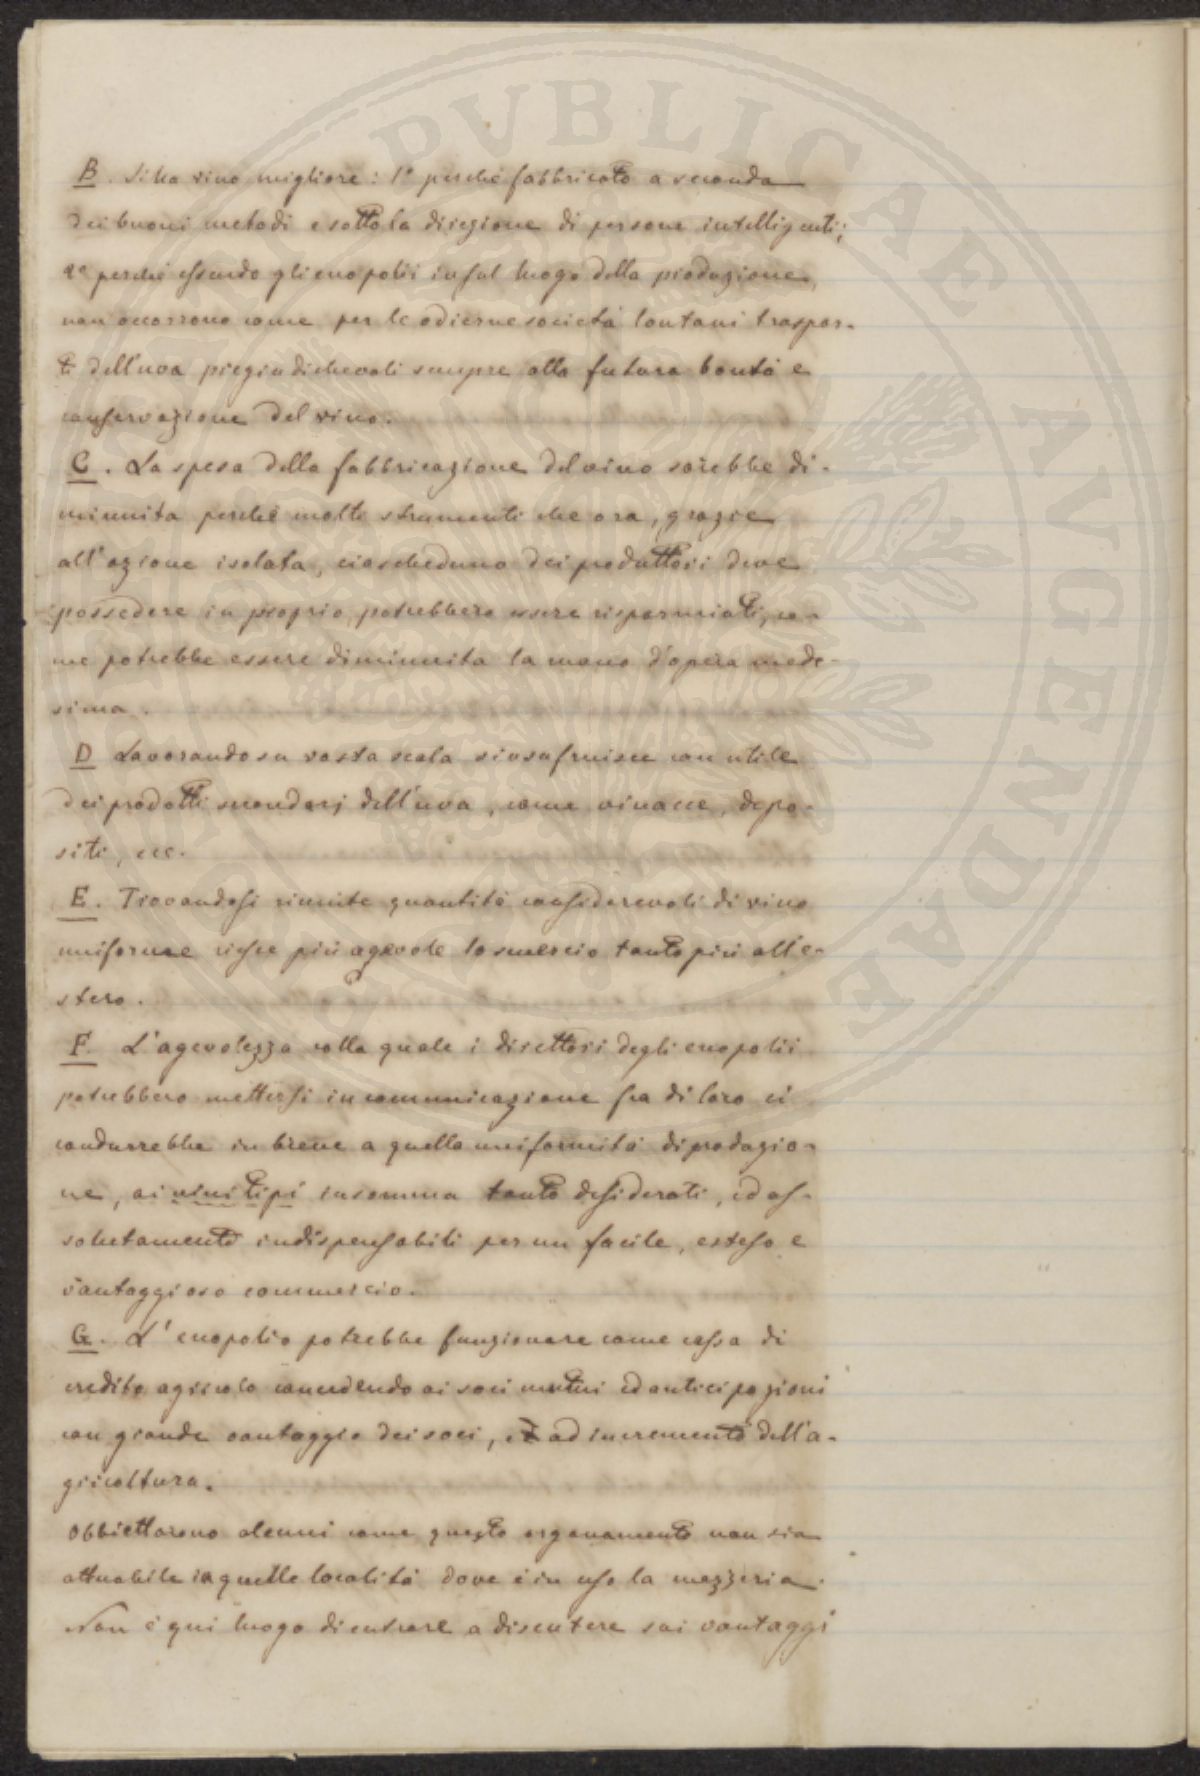 B. Si ha vino migliore: 1º perché fabbricato a seconda
dei buoni metodi e sotto la direzione di persone intelligenti;
2º perché essendo gli enopolii in sul luogo della produzione,
non occorrono come per le odierne società lontani traspor-
ti dell'uva pregiudichevoli sempre alla futura bontà e
conservazione del vino.
C. La spesa della fabbricazione del vino sarebbe di-
minuita perché molti strumenti che ora, grazie
all'azione isolata, ciascheduno dei produttori deve
possedere in proprio, potrebbero essere risparmiati, co-
me potrebbe essere diminuita la mano d'opera mede-
sima.
D Lavorando su vasta scala si usufruisce con utile
dei prodotti secondarj dell'uva, come vinacce, depo-
siti, ecc.
E. Trovandosi riunite quantità considerevoli di vino
uniforme riesce più agevole lo smercio tanto più all'e-
stero.
F. L'agevolezza colla quale i direttori degli enopolii
potrebbero mettersi in comunicazione fra di loro ci
condurrebbe in breve a quella uniformità di produzio-
ne, ai vini tipi insomma tanto desiderati, ed as-
solutamente indispensabili per un facile, esteso e
vantaggioso commercio.
G. L'enopolio potrebbe funzionare come cassa di
credito agricolo concedendo ai soci mutui ed anticipazioni
con grande vantaggio dei soci, ed ad incremento dell'a-
gricoltura.
Obbiettarono alcuni come questo organamento non sia
attuabile in quelle località dove è in uso la mezzeria.
Non è qui luogo di entrare a discutere sui vantaggi
PUBLICAE AUGENDAE